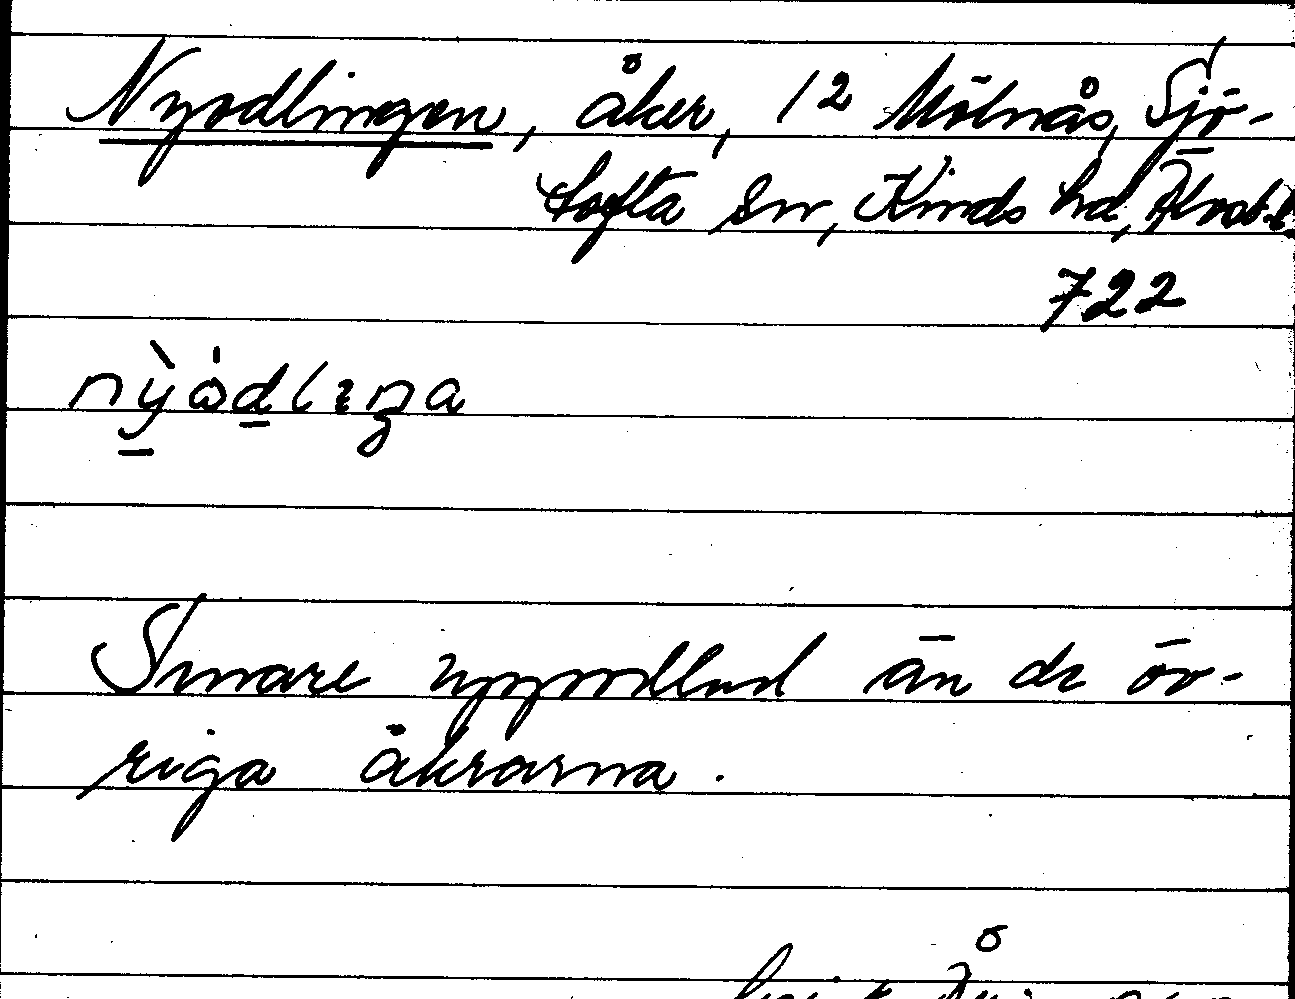 Nyodlingen, åker, 12 Mölnås, Sjö-
tofta sn, Kinds hd, Älvsb.l.
722
nỳödlıŋa
Senare uppodlad än de öv-
riga åkrarna.